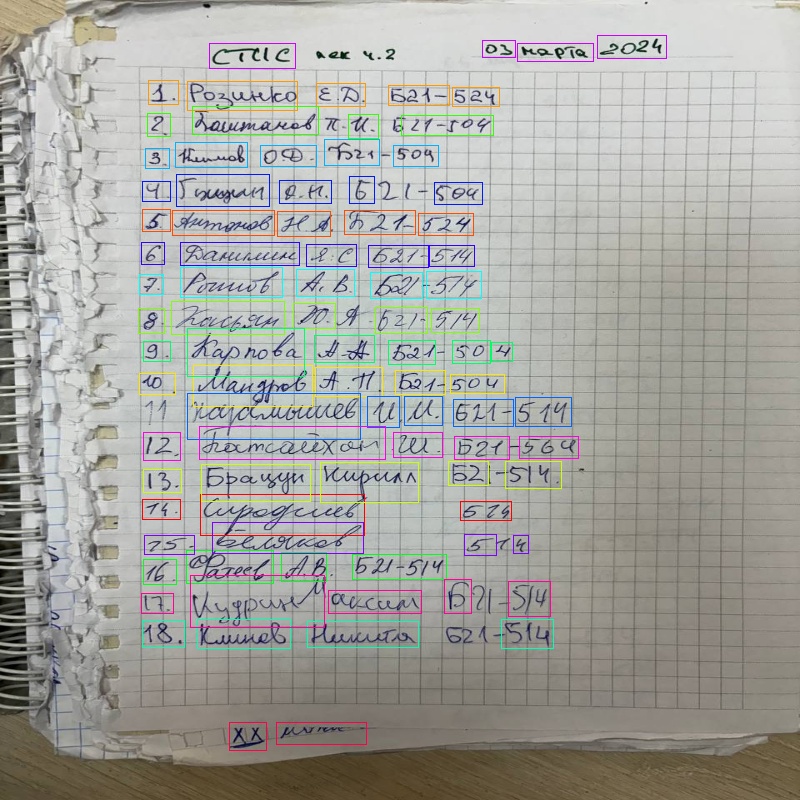 СТИС лек ч.2 03 марта 2024
1. Розинко Е.Д. Б21-524
2. Баштанов П.И. Б21-504
3. Климов О.Ф. Б21-504
4. А.Н. Б21-504
5. Антонов Н.А. Б21-524
6 Данилин Я.С Б21-514
7. А.В. Б21-514
8. Касьян Ю.А. Б21-514
9. Карпова А.А Б21-504
10. Мандров А.П Б21-504
11 Карамышев И.И. Б21-514
12. Батсайхан Ш. Б21-564
13. Брацун Кирилл Б21-514.
14. 514
15. Беляков 514
16. Фатеев А.В. Б21-514
17. Кудрин Максим Б21-514
18. Климов Никита Б21-514
XX